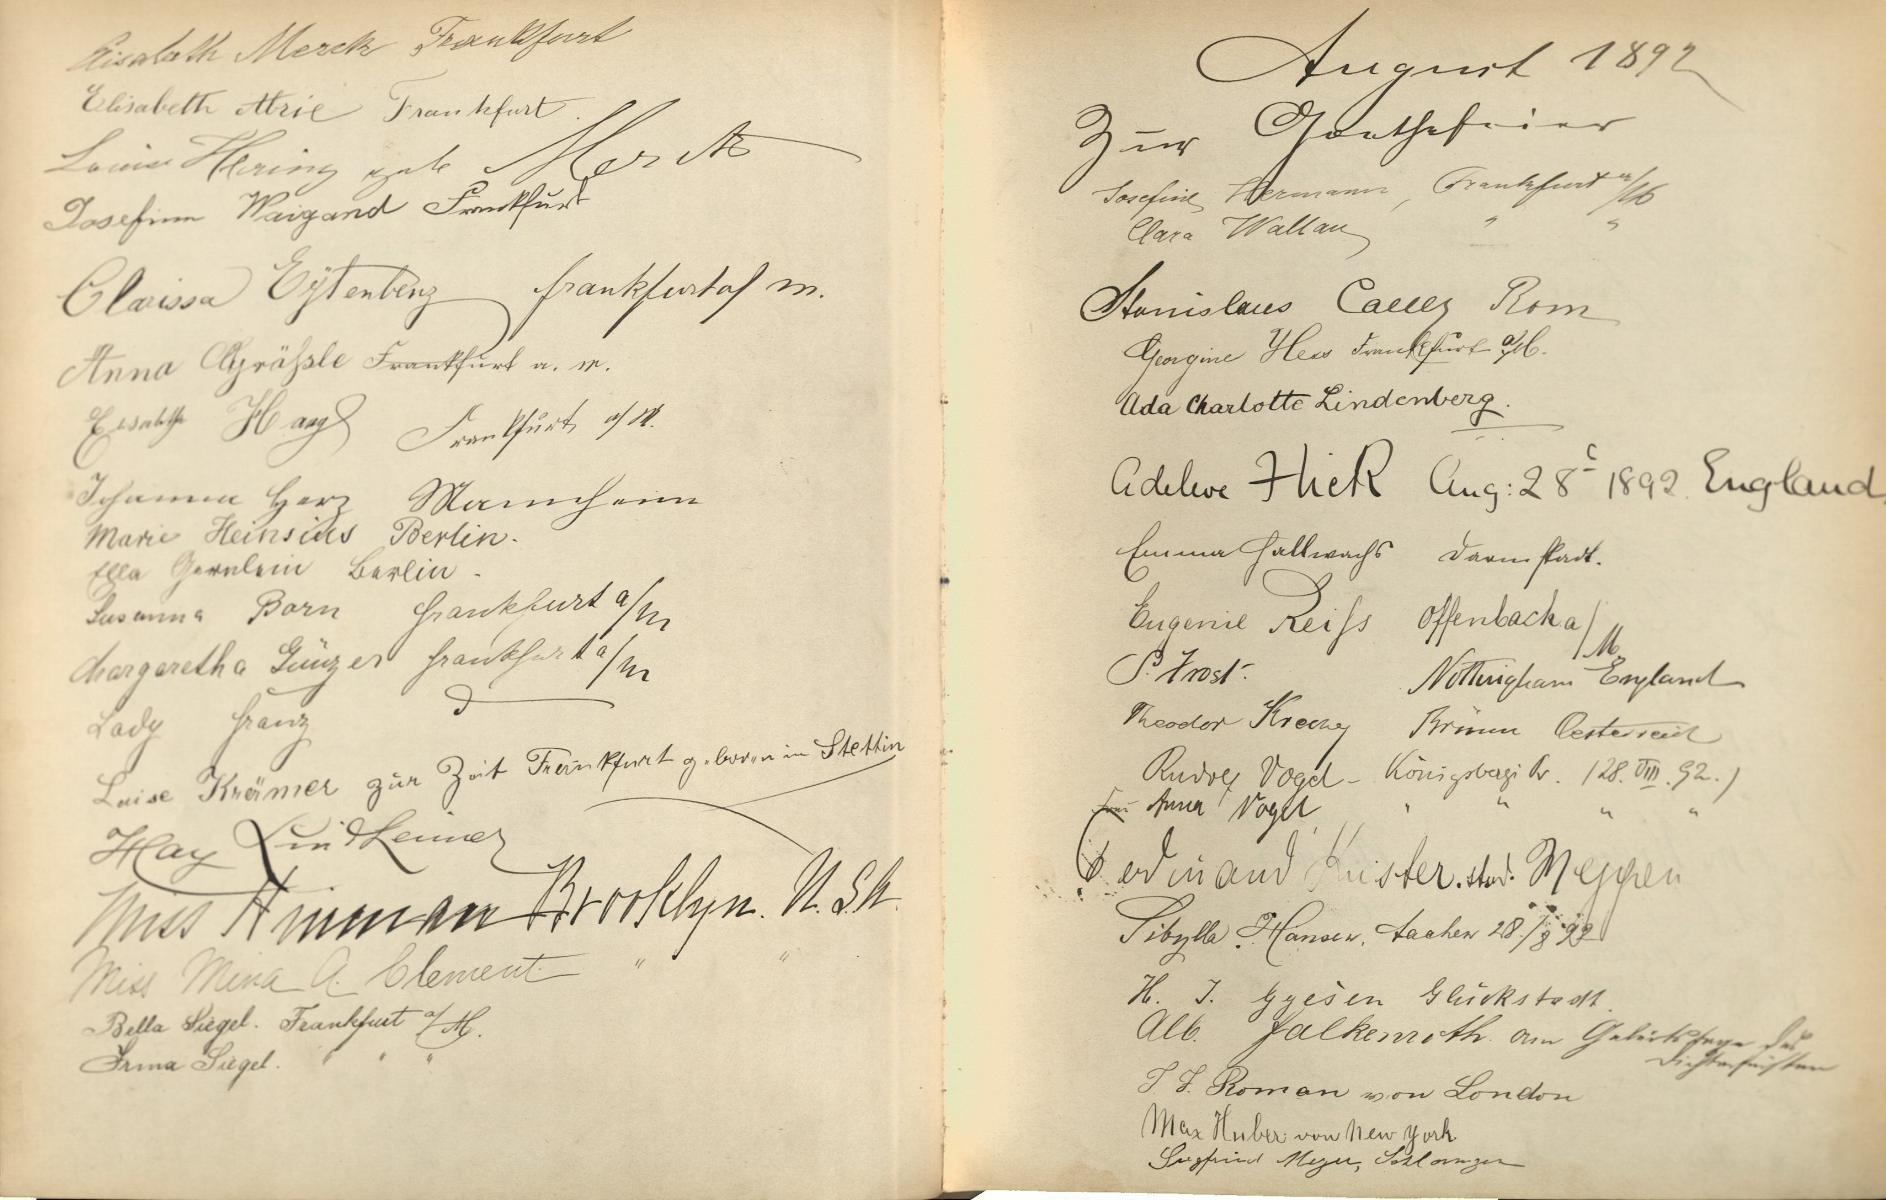 Elisabeth Merck Frankfurt
Elisabeth Frankfurt.
Louise Hering geb Merck
Josefine Waigand Frankfurt
Clarissa Eÿtenbenz Frankfurt a/ M.
Anna Gräfsle Frankfurt a. M.
Elisabeth Haag Frankfurt a/M.
Johanna Herz Mannheim
Marie Heinsius Berlin.
Ella Berlin.
Susanna Born Frankfurt a/M
Margaretha Günzer Frankfurt a/M
Lady Franz
Luise Krämer zur Zeit Frankfurt geboren in Stettin
May Lindheimer
Miss Hinman Brooklyn. U.S.A.
Miss Mina A. Clement " "
Bella Siegel. Frankfurt a/M.
Irma Siegel. " " "
August 1892
Zur Goethefeier
Josefine Hermann, Frankfurt a/M
Clara Wallau " "
Stanislaus Cauer Rom
Georgine Hess Frankfurt a/M.
Ada Charlotte Lindenberg.
Flick Aug: 28t 1892. England
Emma Hallwachs Darmstadt.
Eugenie Reifs Offenbach a/M
S. Frost. Nottingham England
Theodor Brünn Oesterreich
Rudolf Vogel - Königsberg i Pr. (28. VIII. 92.)
Frau Anna Vogel " " " "
Ferdinand Küster. stud. Meppen
Sibylla Hansen, Aachen 28/8 92
H. J. Glückstadt.
Alb. Falkenroth. am Geburtstage des
Dichterfürsten
Roman von London
Max Huber von New York
Siegfried Meyer,